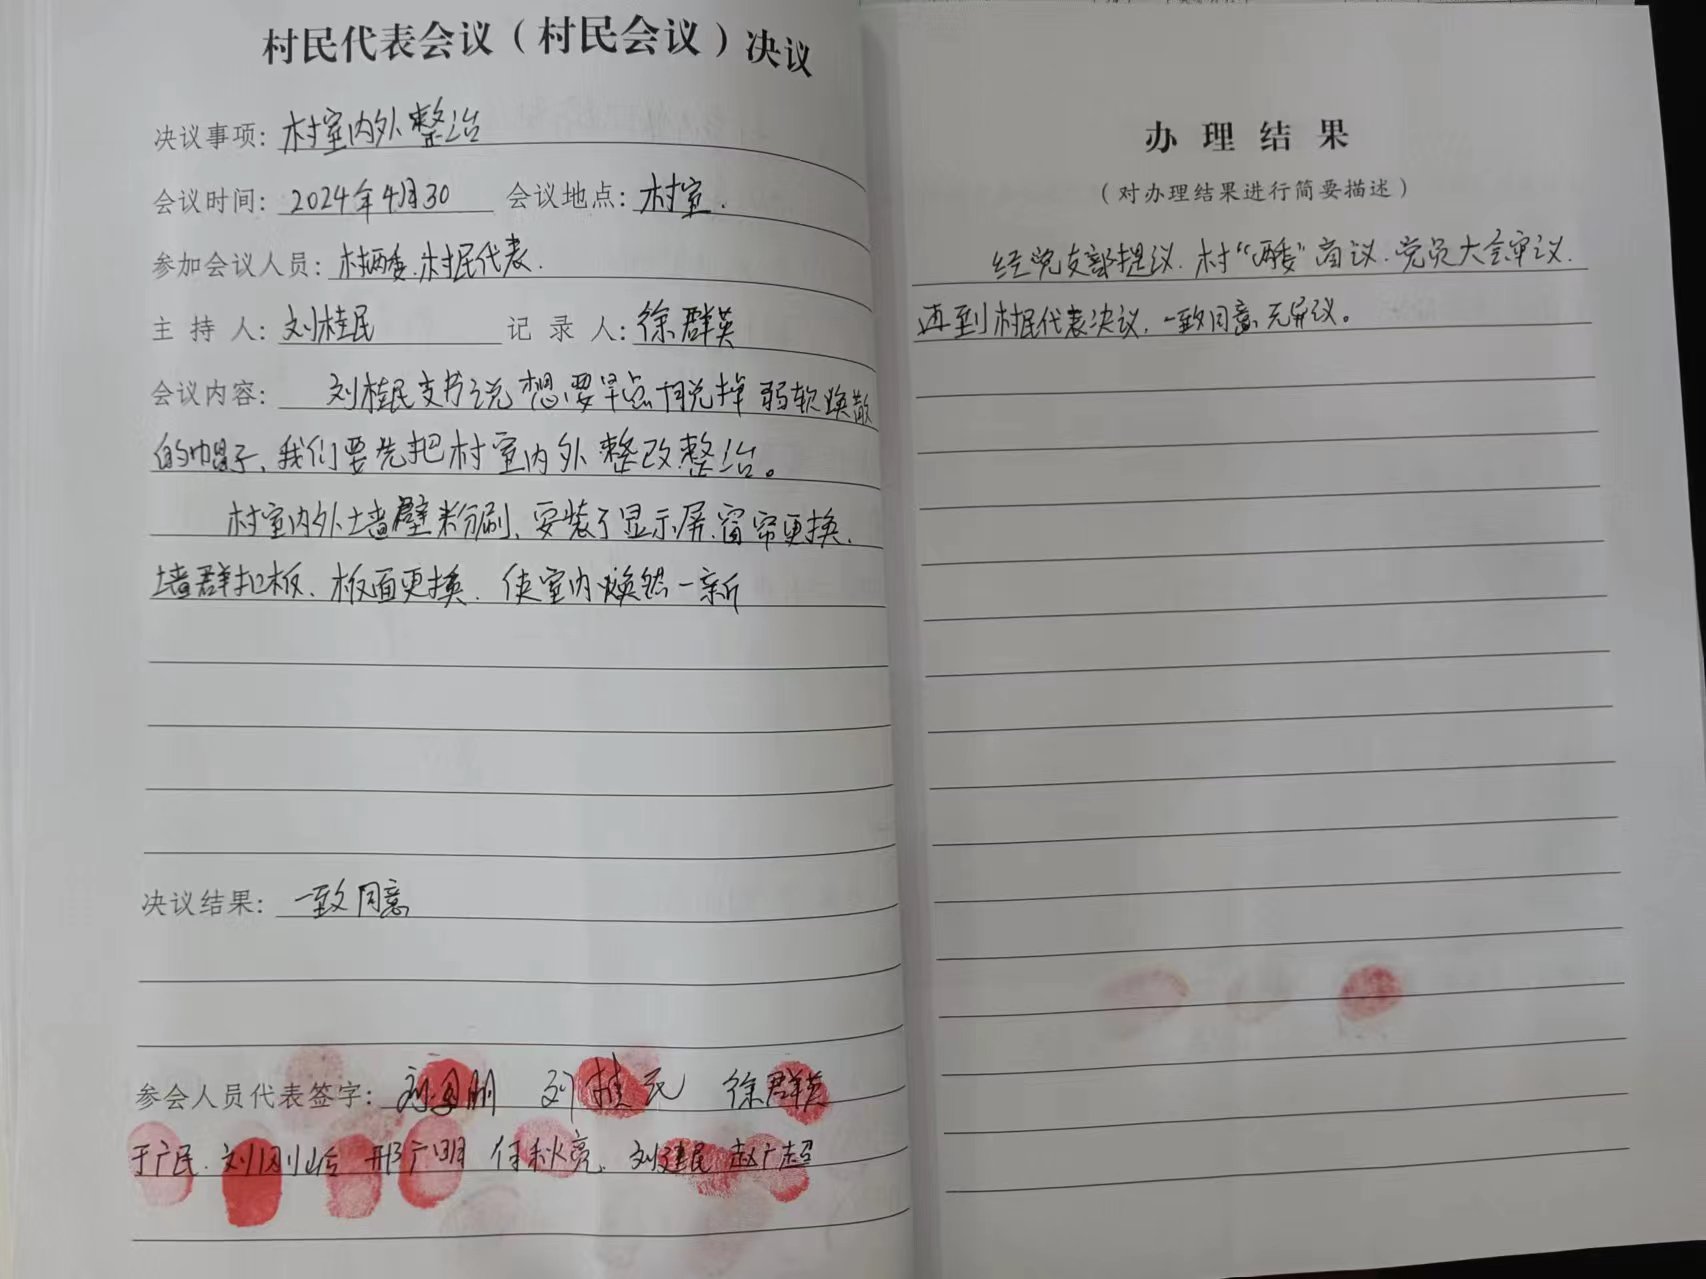 村民代表会议（村民会议）决议
决议事项：村室内外整治
会议时间：2024年4月30 会议地点：村室.
参加会议人员：村两委.村民代表.
主持人：刘桂民 记录人：徐群英
会议内容： 刘桂民支书说想要早点脱掉弱软焕散
的帽子，我们要先把村室内外整改整治。
村室内外墙壁粉刷、安装了显示屏、窗帘更换、
墙群扣板、板面更换、使室内焕然一新
决议结果：一致同意
参会人员代表签字：刘 朋 刘桂民 徐群英
于广民.刘刚岭 邢广明 任秋亮.刘建民 赵广超
办理结果
（对办理结果进行简要描述）
经党支部提议、村“两委”商议、党员大会审议、
还到村民代表决议，一致同意无异议。